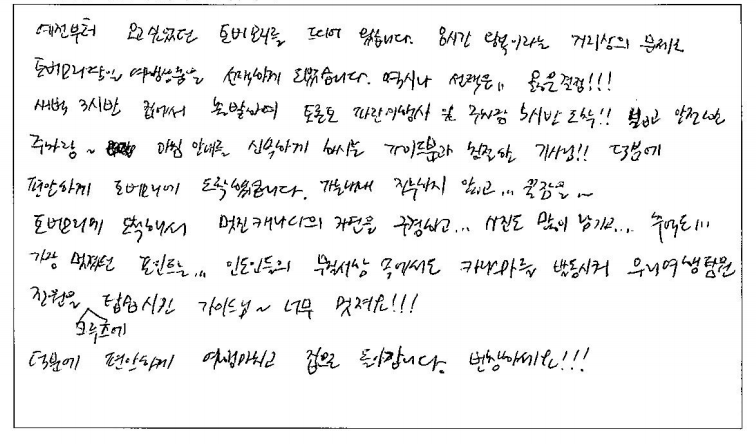 예전부터 오고싶었던 토버모리를 드디어 왔습니다. 8시간 왕복이라는 거리상의 문제로
토버모리당일 여행상품을 선택하게 되었습니다. 역시나 선택은,, 옳은결정!!!
새벽 3시반 집에서 출발하여 토론토 파란여행사 앞 주차장 5시반 도착!! 넓고 안전한
주차장~ 아침 안내를 신속하게 하시는 가이드분과 친절한 기사님!! 덕분에
편안하게 토버모리에 도착했습니다. 가는내내 지루하지 않고... 꿀잠을~
토버모리에 도착해서 멋진 캐나다의 자연을 구경하고... 사진도 많이 남기고... 추억도!!!
가장 멋졌던 포인트는,,, 인도인들의 무질서상 속에서도 카리스마를 발동시켜 우리여행팀원
전원을 탑승시킨 가이드님~ 너무 멋져요!!!
크루즈에
덕분에 편안하게 여행마치고 집으로 돌아갑니다. 번창하세요!!!